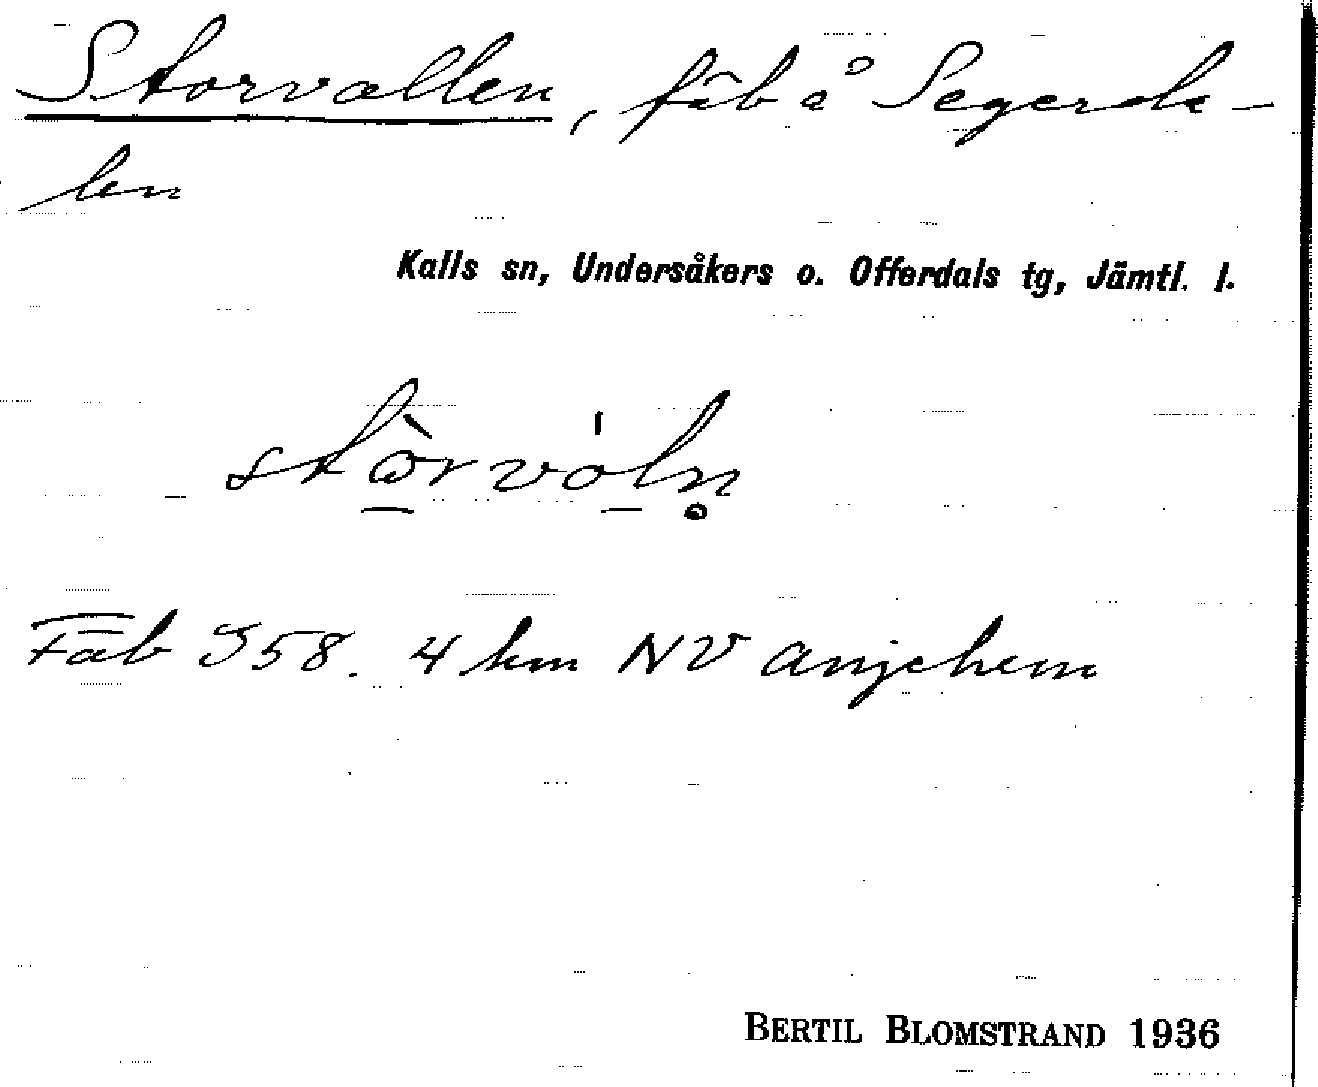 Storvallen, fäb å Segerda-
len
Kalls sn, Undersåkers o. Offerdals tg, Jämtl. l.
stὼ̲rvo̲̍ln̥
Fäb S58. 4 km NV Anjehem
BERTIL BLOMSTRAND 1936